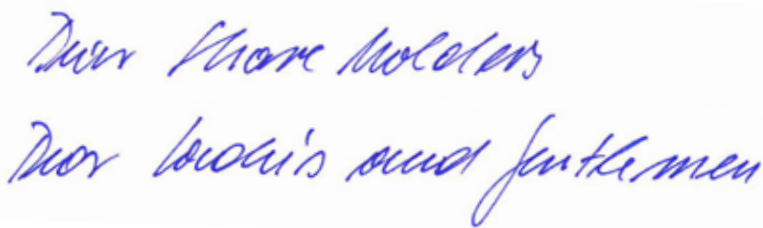 Dear Shareholders
Dear Ladies and Gentlemen